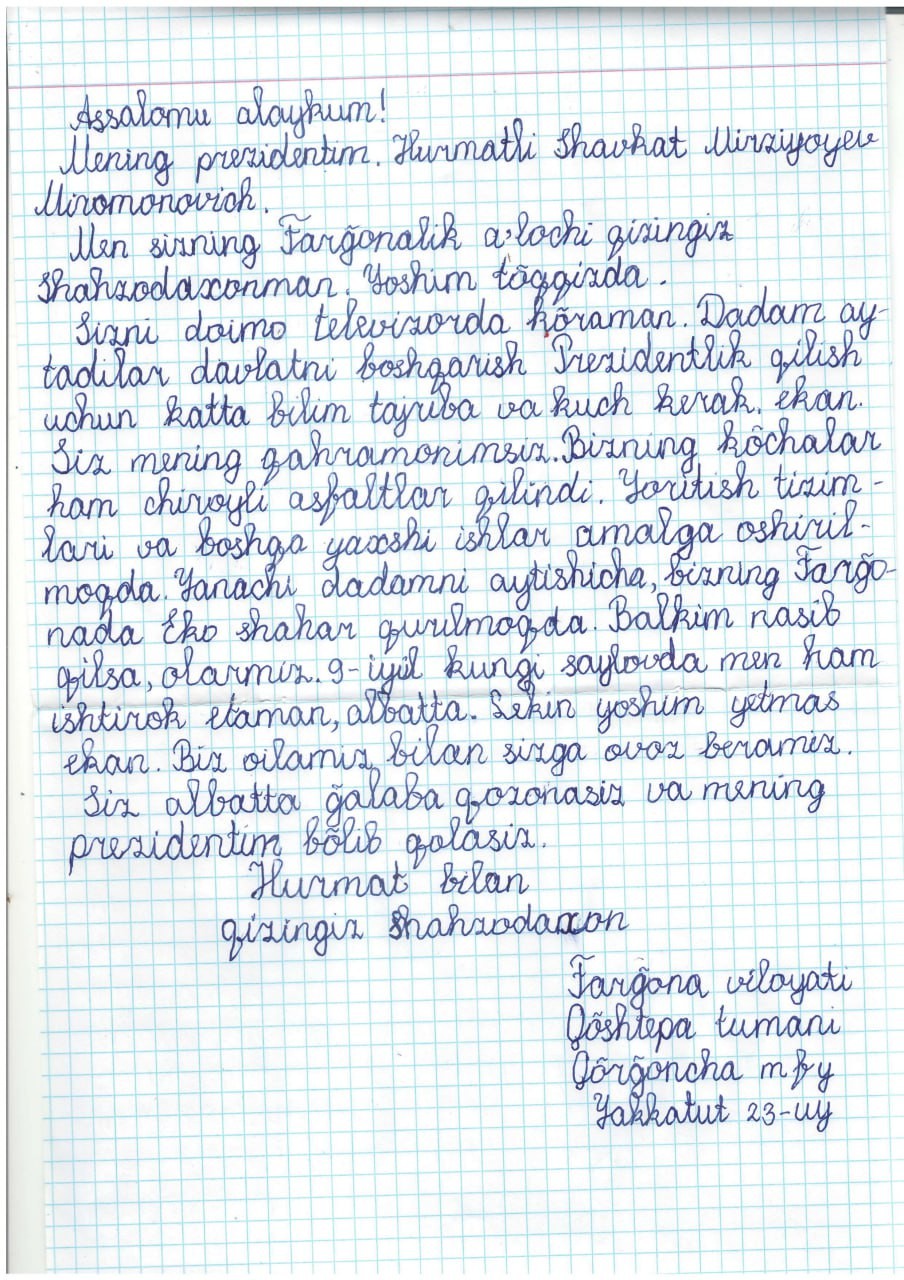 Assalomu alaykum!
Mening prezidentim. Hurmatli Shavkat Mirziyoyev
Miromonovich.
Men sizning Farg̃onalik a'lochi qizingiz
Shahzodaxonman. Yoshim tõqqizda.
Sizni doimo televizorda kõraman. Dadam ay-
tadilar davlatni boshqarish Prezidentlik qilish
uchun katta bilim tajriba va kuch kerak. ekan.
Siz mening qahramonimsiz. Bizning kõchalar
ham chiroyli asfaltlar qilindi. Yoritish tizim-
lari va boshqa yaxshi ishlar amalga oshiril-
moqda. Yanachi dadamni aytishicha, bizning Farg̃o-
nada Eko shahar qurilmoqda. Balkim nasib
qilsa, olarmiz. 9-iyil kungi saylovda men ham
ishtirok etaman, albatta. Lekin yoshim yetmas
ekan. Biz oilamiz bilan sizga ovoz beramiz.
Siz albatta g̃alaba qozonasiz va mening
prezidentim bõlib qolasiz.
Hurmat bilan
qizingiz Shahzodaxon
Farg̃ona viloyati
Qõshtepa tumani
Qõrg̃oncha mfy
Yakkatut 23-uy